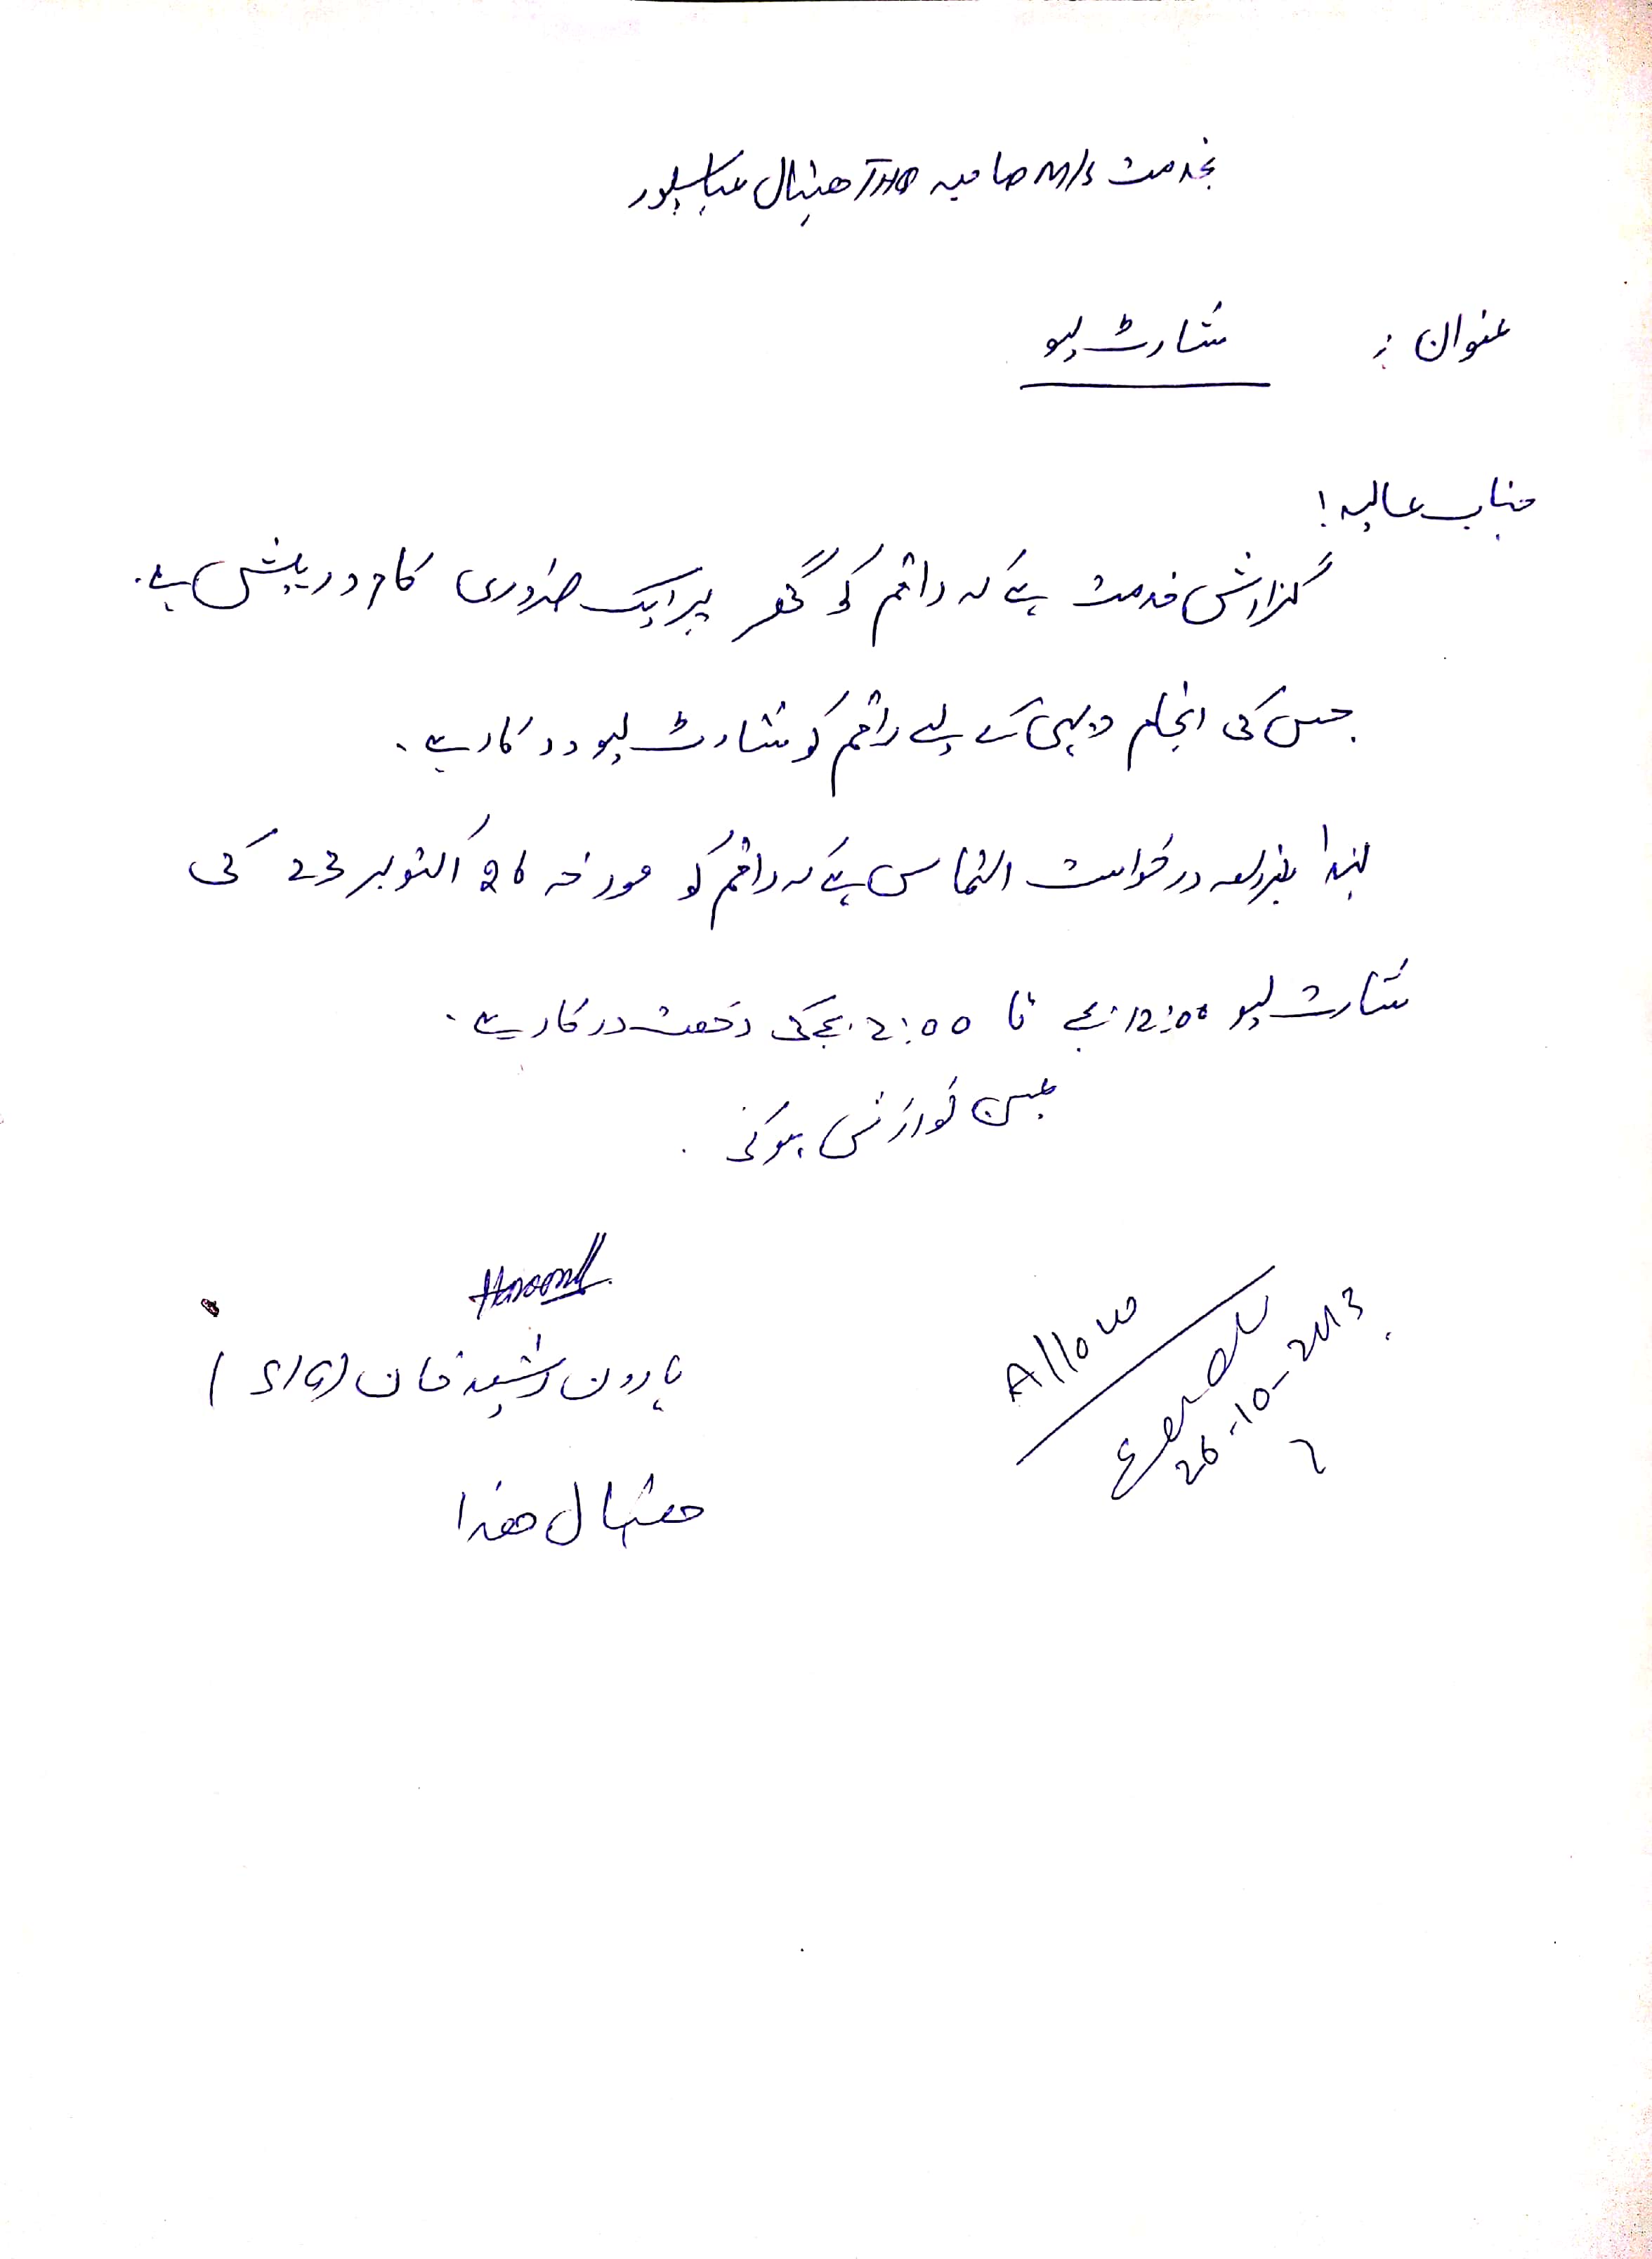 بخدمت M/S صاحبہ THQ ھسپتال عباسپور
عنوان : شارٹ لیو
جناب عالیہ!
گزارش خدمت ہے کہ راقم کو گھر پر ایک ضروری کام درپیش ہے۔
جس کی انجام دہی کے لیے راقم کو شارٹ لیو درکار ہے۔
لہذا بذریعہ درخواست التماس ہے کہ راقم کو مورخہ 26 اکتوبر 23 کی
شارٹ لیو 12:00 بجے تا 2:00 بجے کی رخصت درکار ہے۔
عین نوازش ہو گی۔
Haroon
ہارون رشید خان (S/G)
ھسپتال ھذا
Allow
26-10-2023